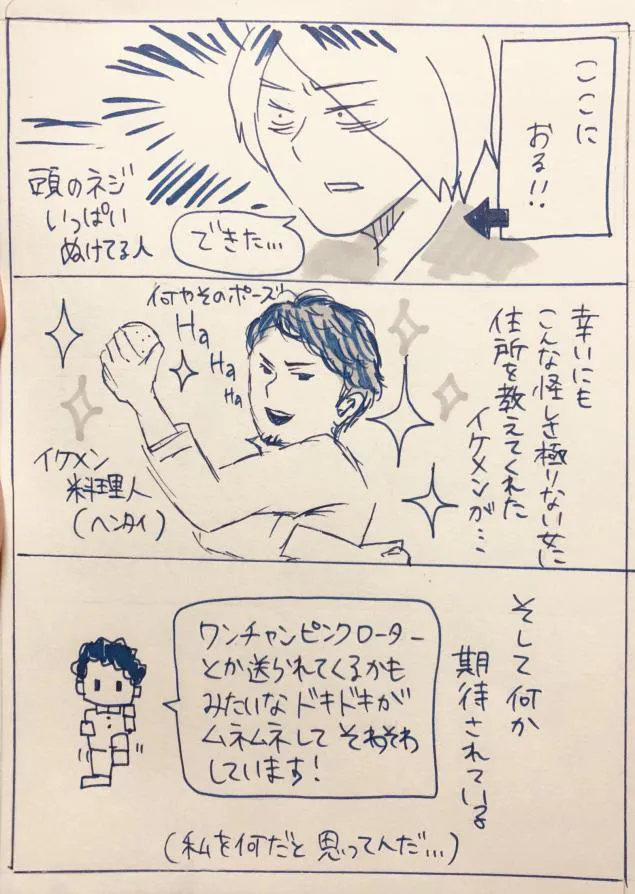 ここに
おる!!
できた…
頭のネジ
いっぱい
ぬけてる人
幸いにも
こんな怪しき極りない女に
住所を教えてくれた
イケメンが…
何やそのポーズ
Ha
Ha
Ha
イケメン
料理人
(ヘンタイ)
そして何か
期待されている
ワンチャンピンクローター
とか送られてくるかも
みたいなドキドキが
ムネムネしてそわそわ
しています!
(私を何だと思ってんだ…)